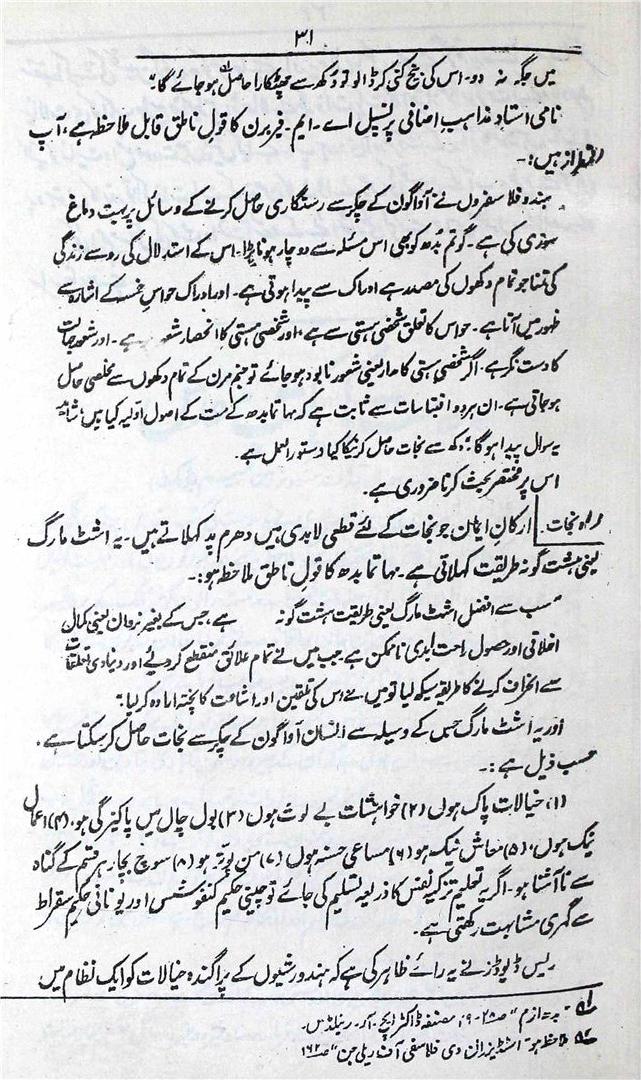 ۳۱
میں جگہ نہ دو۔ اس کی بیخ کنی کر ڈالو تو دکھ سے چھٹکارا حاصل ہو جائے گا۔"
نامی استاد مذاہب اضافی پرنسپل اے۔ ایم۔ فیربرن کا قول ناطق قابل ملاحظہ ہے، آپ
رقمطراز ہیں:۔
"ہندو فلاسفروں نے آواگون کے چکر سے رستگاری حاصل کرنے کے وسائل پر بہت دماغ
سوزی کی ہے۔ گوتم بُدھ کو بھی اس مسئلہ سے دو چار ہونا پڑا۔ اس کے استدلال کی رو سے زندگی
کی تمنا جو تمام دکھوں کی مصدر ہے ادراک سے پیدا ہوتی ہے۔ اور ادراک حواسِ خمسہ کے اشارہ سے
ظہور میں آتا ہے۔ حواس کا تعلق شخصی ہستی سے ہے، اور شخصی ہستی کا انحصار شعور ہے۔ اور شعور جہالت
کا دست نگر ہے۔ اگر شخصی ہستی کا مدار یعنی شعور نابود ہو جائے تو جنم مرن کے تمام دکھوں سے مخلصی حاصل
ہو جاتی ہے۔ ان ہر دو اقتباسات سے ثابت ہے کہ مہاتما بدھ کے مت کے اصول اولیہ کیا ہیں؛ شاید
یہ سوال پیدا ہوگا کہ دکھ سے نجات حاصل کرنیکا کیا دستور العمل ہے۔
اس پر مختصر بحث کرنا ضروری ہے۔
راہ نجات۔ ارکانِ ایمان جو نجات کے لئے قطعی لابدی ہیں دھرم پد کہلاتے ہیں۔ یہ اشٹ مارگ
یعنی ہشت گونہ طریقت کہلاتی ہے۔ مہاتما بدھ کا قولِ ناطق ملاحظہ ہو:۔
"سب سے افضل اشٹ مارگ یعنی طریقت ہشت گونہ ہے، جس کے بغیر نروان یعنی کمال
اخلاقی اور حصول راحت ابدی ناممکن ہے۔ جب میں نے تمام علائق منقطع کر دیئے اور دنیاوی تعلقات
سے انحراف کرنے کا طریقہ سیکھ لیا تو میں نے اس کی تلقین اور اشاعت کا پختہ ارادہ کر لیا۔"
اور یہ اشٹ مارگ جس کے وسیلہ سے انسان آواگون کے چکر سے نجات حاصل کر سکتا ہے،
حسب ذیل ہے:۔
(۱) خیالات پاک ہوں (۲) خواہشات بے لوث ہوں (۳) بول چال میں پاکیزگی ہو، (۴) اعمال
نیک ہوں، (۵) معاش نیک ہو (۶) مساعی حسنہ ہوں (۷) من پوتر ہو (۸) سوچ بچار ہر قسم کے گناہ
سے ناآشنا ہو۔ اگر یہ تعلیم تزکیہ نفس کا ذریعہ تسلیم کی جائے تو چینی حکیم کنفیوشس اور یونانی حکیم سقراط
سے گہری مشابہت رکھتی ہے۔
ریس ڈیوڈز نے یہ رائے ظاہر کی ہے کہ ہندو رشیوں کے پراگندہ خیالات کو ایک نظام میں
۱؎ "بدھ ازم" ص ۲۸-۹، مصنفہ ڈاکٹر ایچ۔ آر۔ رینلڈس۔
۲؎ ملاحظہ ہو "اسٹڈیز ان دی فلاسفی آف ریلی جن" ص ۱۶۲